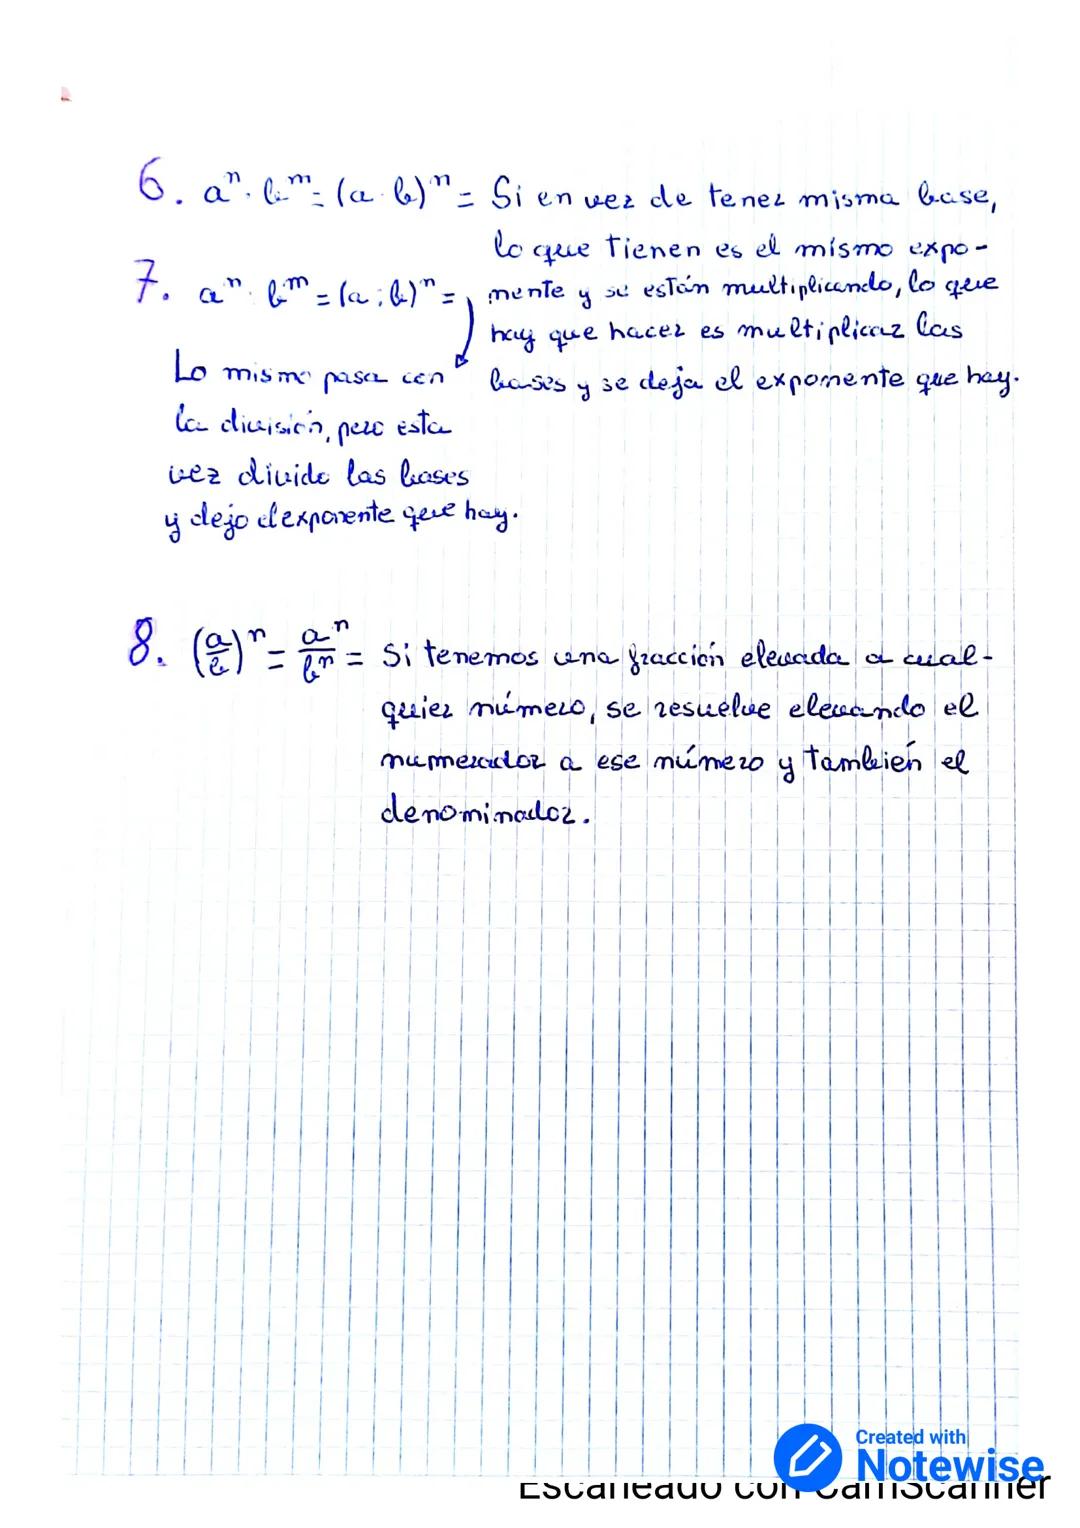 6. aⁿ · bᵐ = (a · b)ⁿ = Si en vez de tener misma base,
lo que tienen es el mísmo expo-
mente y se están multiplicando, lo que
hay que hacer es multiplicar las
bases y se deja el exponente que hay.
7. aⁿ : bᵐ = (a : b)ⁿ =
Lo mismo pasa con
la división, pero esta
vez divido las bases
y dejo el exponente que hay.
8. (a/b)ⁿ = aⁿ/bⁿ = Si tenemos una fracción elevada a cual-
quier número, se resuelve elevando el
numerador a ese número y también el
denominador.
Created with
Notewise
Escaneado con CamScanner